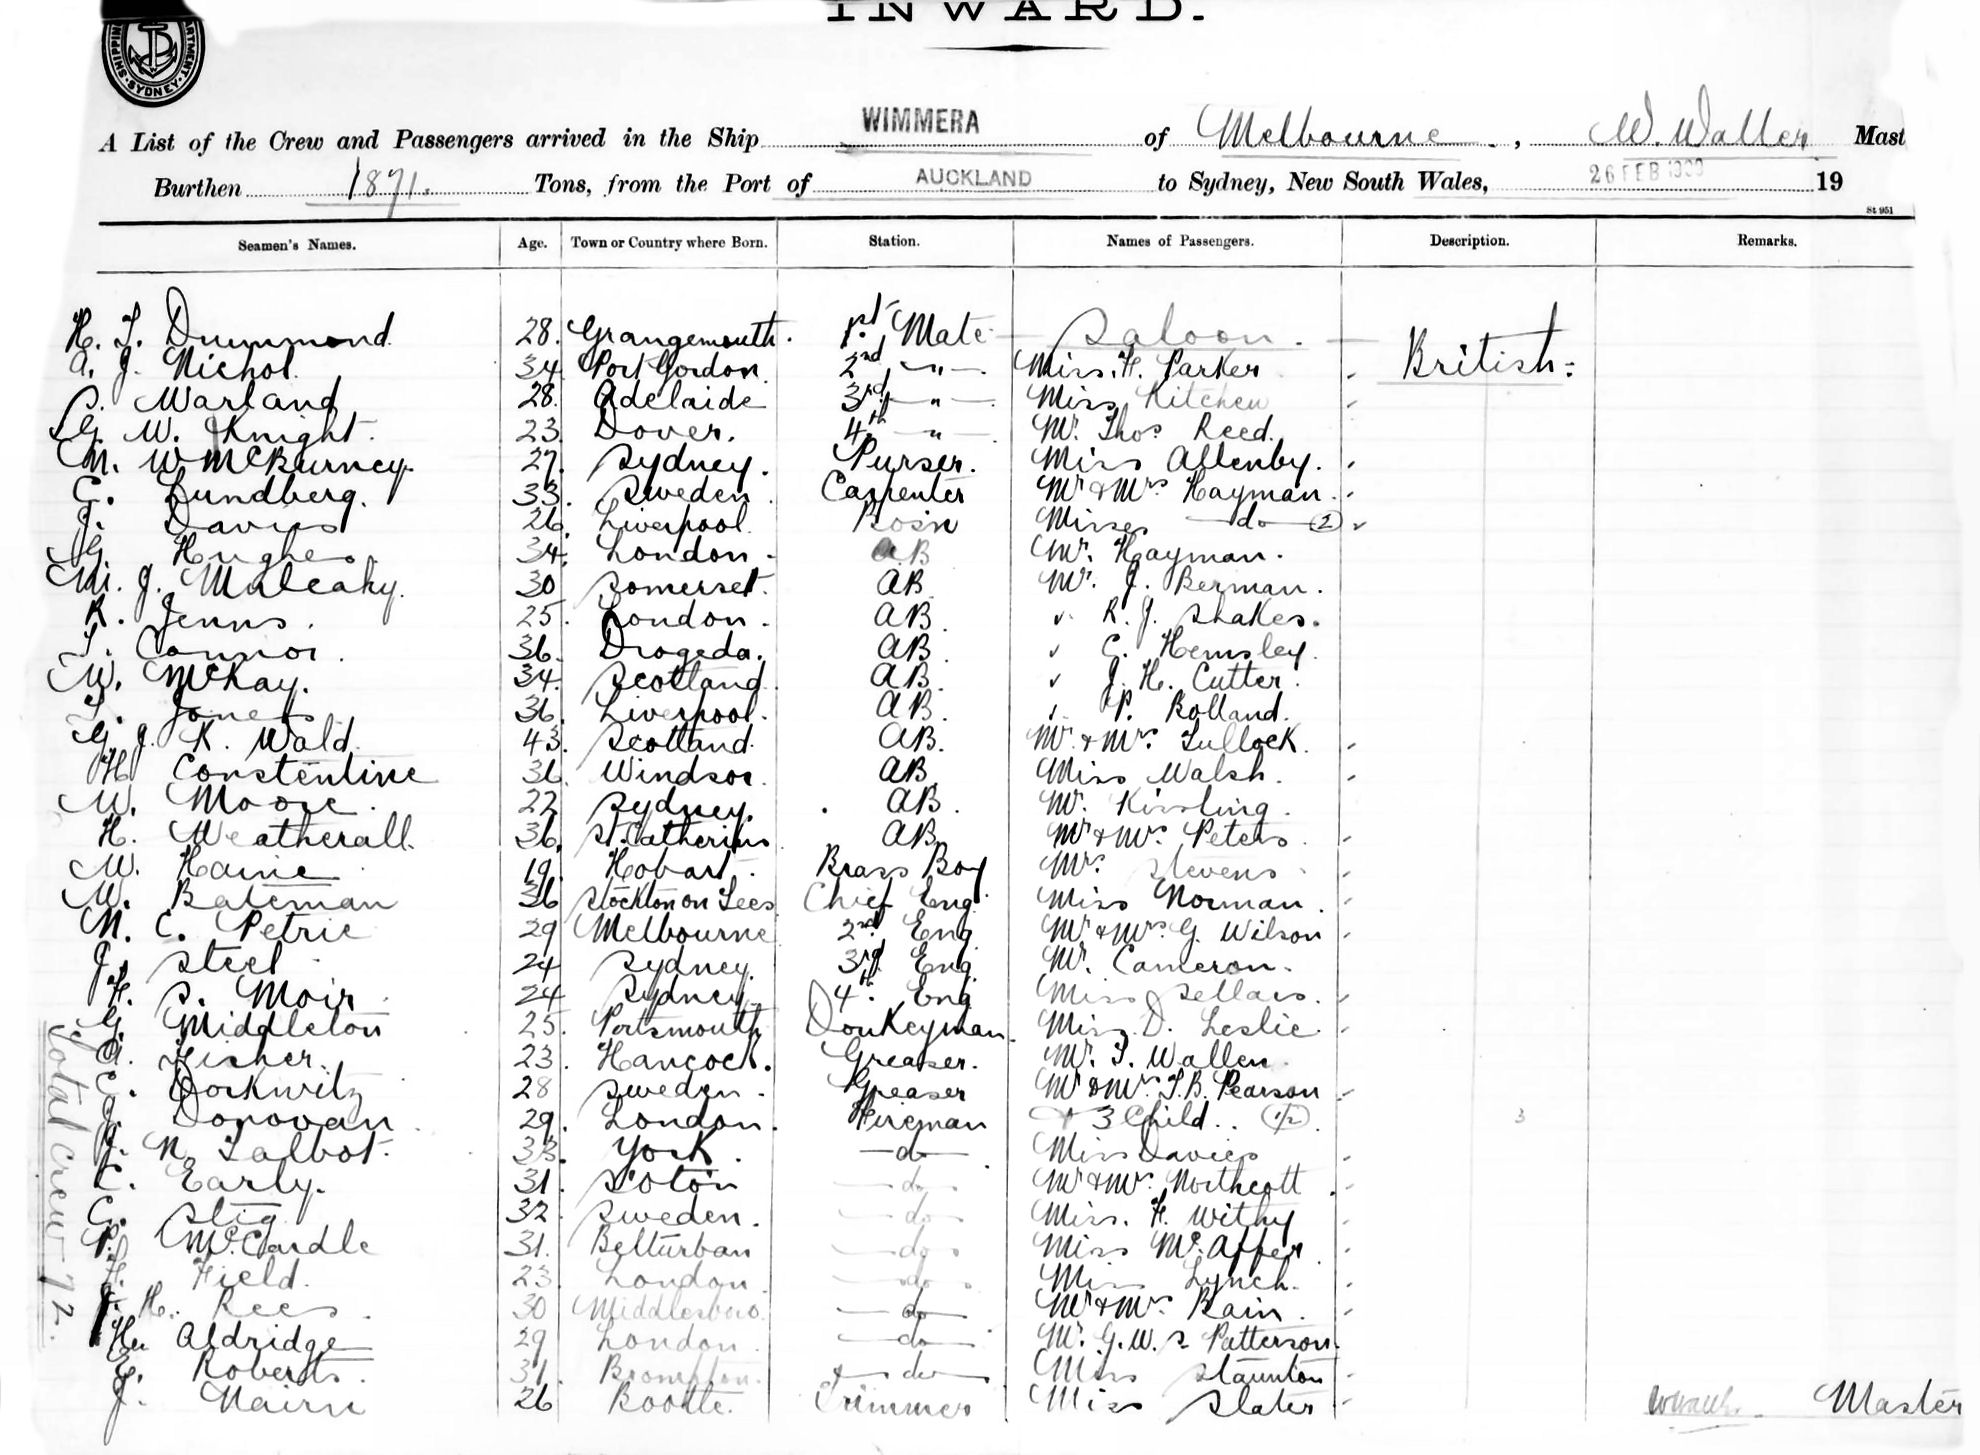 INWARD.
SYDNEY
A List of the Crew and Passengers arrived in the Ship WIMMERA of Melbourne, W. Waller Mast
Burthen 1871. Tons, from the Port of AUCKLAND to Sydney, New South Wales, 26 FEB 19
St 951
Seamen's Names. Age. Town or Country where Born. Station. Names of Passengers. Description. Remarks.
H. T. Drummond 28. Grangemouth. 1st Mate Saloon.
A. J. Nichol. 34 Port Gordon. 2nd " Miss. H. Parker British:
S. Warland 28. Adelaide 3rd " Miss Kitchen
G. W. Knight. 23 Dover. 4th " Mr. Thos. Reed.
M. W. McBurney. 27. Sydney. Purser. Miss Allenby.
C. Lundberg. 33. Sweden. Carpenter Mr & Mrs Hayman.
J. Davies 26. Liverpool. Bosn Misses do (2)
G. Hughes. 34. London. AB Mr. Hayman.
M. J. Mulcahy. 30 Somerset. AB Mr. J. Berman.
R. Jenns. 25. London. AB. R. J. Shakes.
T. Connor. 36. Drogeda. AB. C. Hemsley.
W. McKay. 34. Scotland. AB. J. H. Cutter.
T. Jones 36. Liverpool. AB. P. Bolland.
G. J. K. Wald. 43. Scotland. AB. Mr. & Mrs. Tullock.
H Constentine 36 Windsor. AB Miss Walsh.
W. Moore. 22 Sydney. AB. Mr. Kissling.
H. Weatherall. 36. St. Catherins AB. Mr & Mrs. Peters
W. Haine 19. Hobart. Brass Boy Mrs. Stevens
W. Bateman 36 Stockton on Tees Chief Eng. Miss Norman.
N. C. Petrie 29 Melbourne 2nd Eng Mr & Mrs. G. Wilson
J. Steel 24 Sydney. 3rd Eng Mr. Cameron.
H. S. Moir 24 Sydney. 4th. Eng Miss Sellars.
G. Middleton 25. Portsmouth Donkeyman. Miss. D. Leslie.
A. Fisher. 23. Hancock. Greaser. Mr. T. Wallen.
C. Doskwitz 28 Sweden. Greaser Mr & Mrs. T. B. Pearson
J. Donovan 29. London. Fireman + 3 Child.. (1/2) 3
J. N. Talbot. 33. York. do Miss Davies
C. Early. 31. S'oton do Mr & Mrs. Northcott.
C. Stig 32. Sweden. do Miss. H. Withy
P. McCardle 31. Belturban do Miss McAffer.
H. Field. 23. London do Miss Lynch.
J. H. Rees. 30 Middlesboro. do Mr & Mrs. Bain.
H. Aldridge 29 London. do Mr. G. W. S Patterson.
E. Roberts. 31. Brompton. do Miss Staunton
J. Nairn 26 Bootle. Trimmer Miss Slater
Total Crew 72.
Master